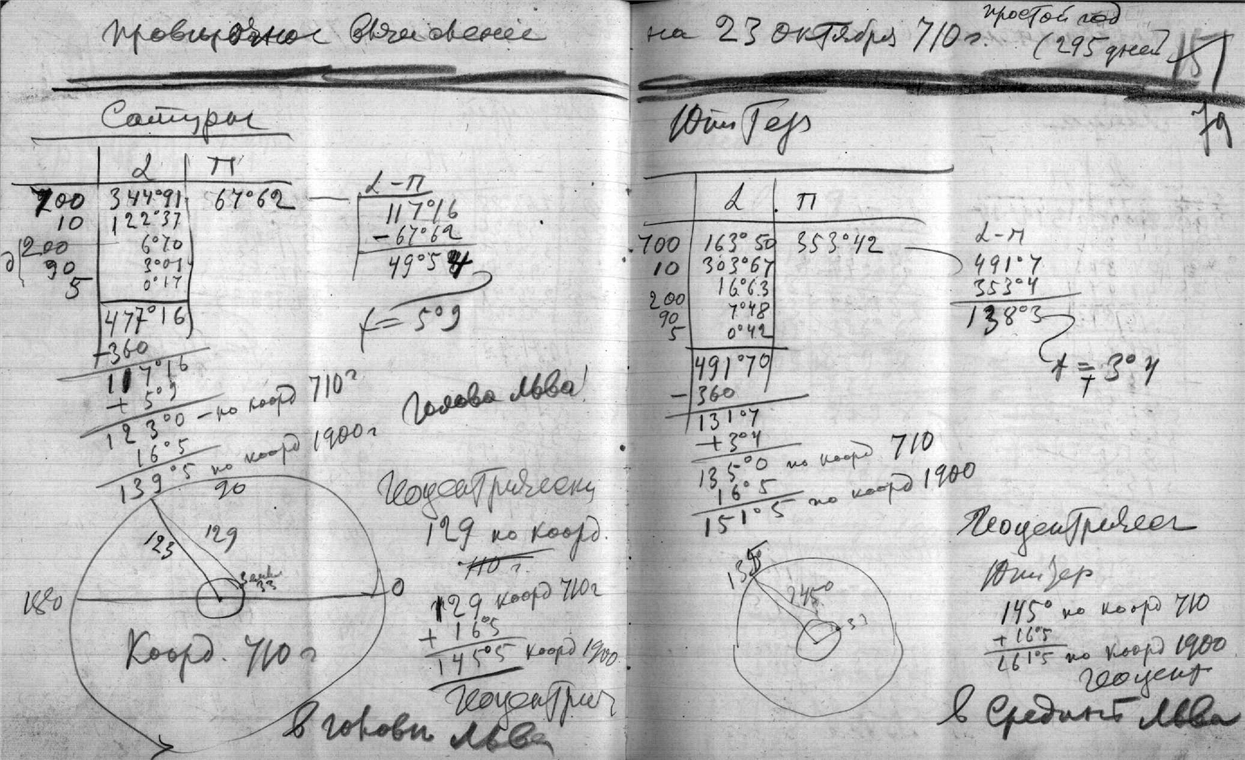 проверочное вычисление на 23 октября 710 г. простой год
(295 дней)
Сатурн
L П
700 344°91 67°62
10 122°37
200 6°70
90 3°01
5 0°17
477°16
-360
117°16
+ 5°9
123°0 - по коорд 710г
16°5
139°5 по коорд 1900г
L-П
117°16
-67°62
49°54
= 5°9
Голова Льва!
90
123 129
33
180 0
Коорд. 710 г
Геоцентрически
129 по коорд.
710 г.
129 коорд 710г
+ 16°5
145°5 коорд 1900
Геоцентрич
в голове Льва
Юпитер
79
L П
700 163°50 353°42
10 303°67
200 16°63
90 7°48
5 0°42
491°70
-360
131°7
+3°4
135°0 по коорд 710
16°5
151°5 по коорд 1900
L-П
491°7
353°4
138°3
= 3°4
135
Геоцентрическ
Юпитер
145° по коорд 710
+ 16°5
161°5 по коорд 1900
геоцент
в средине Льва